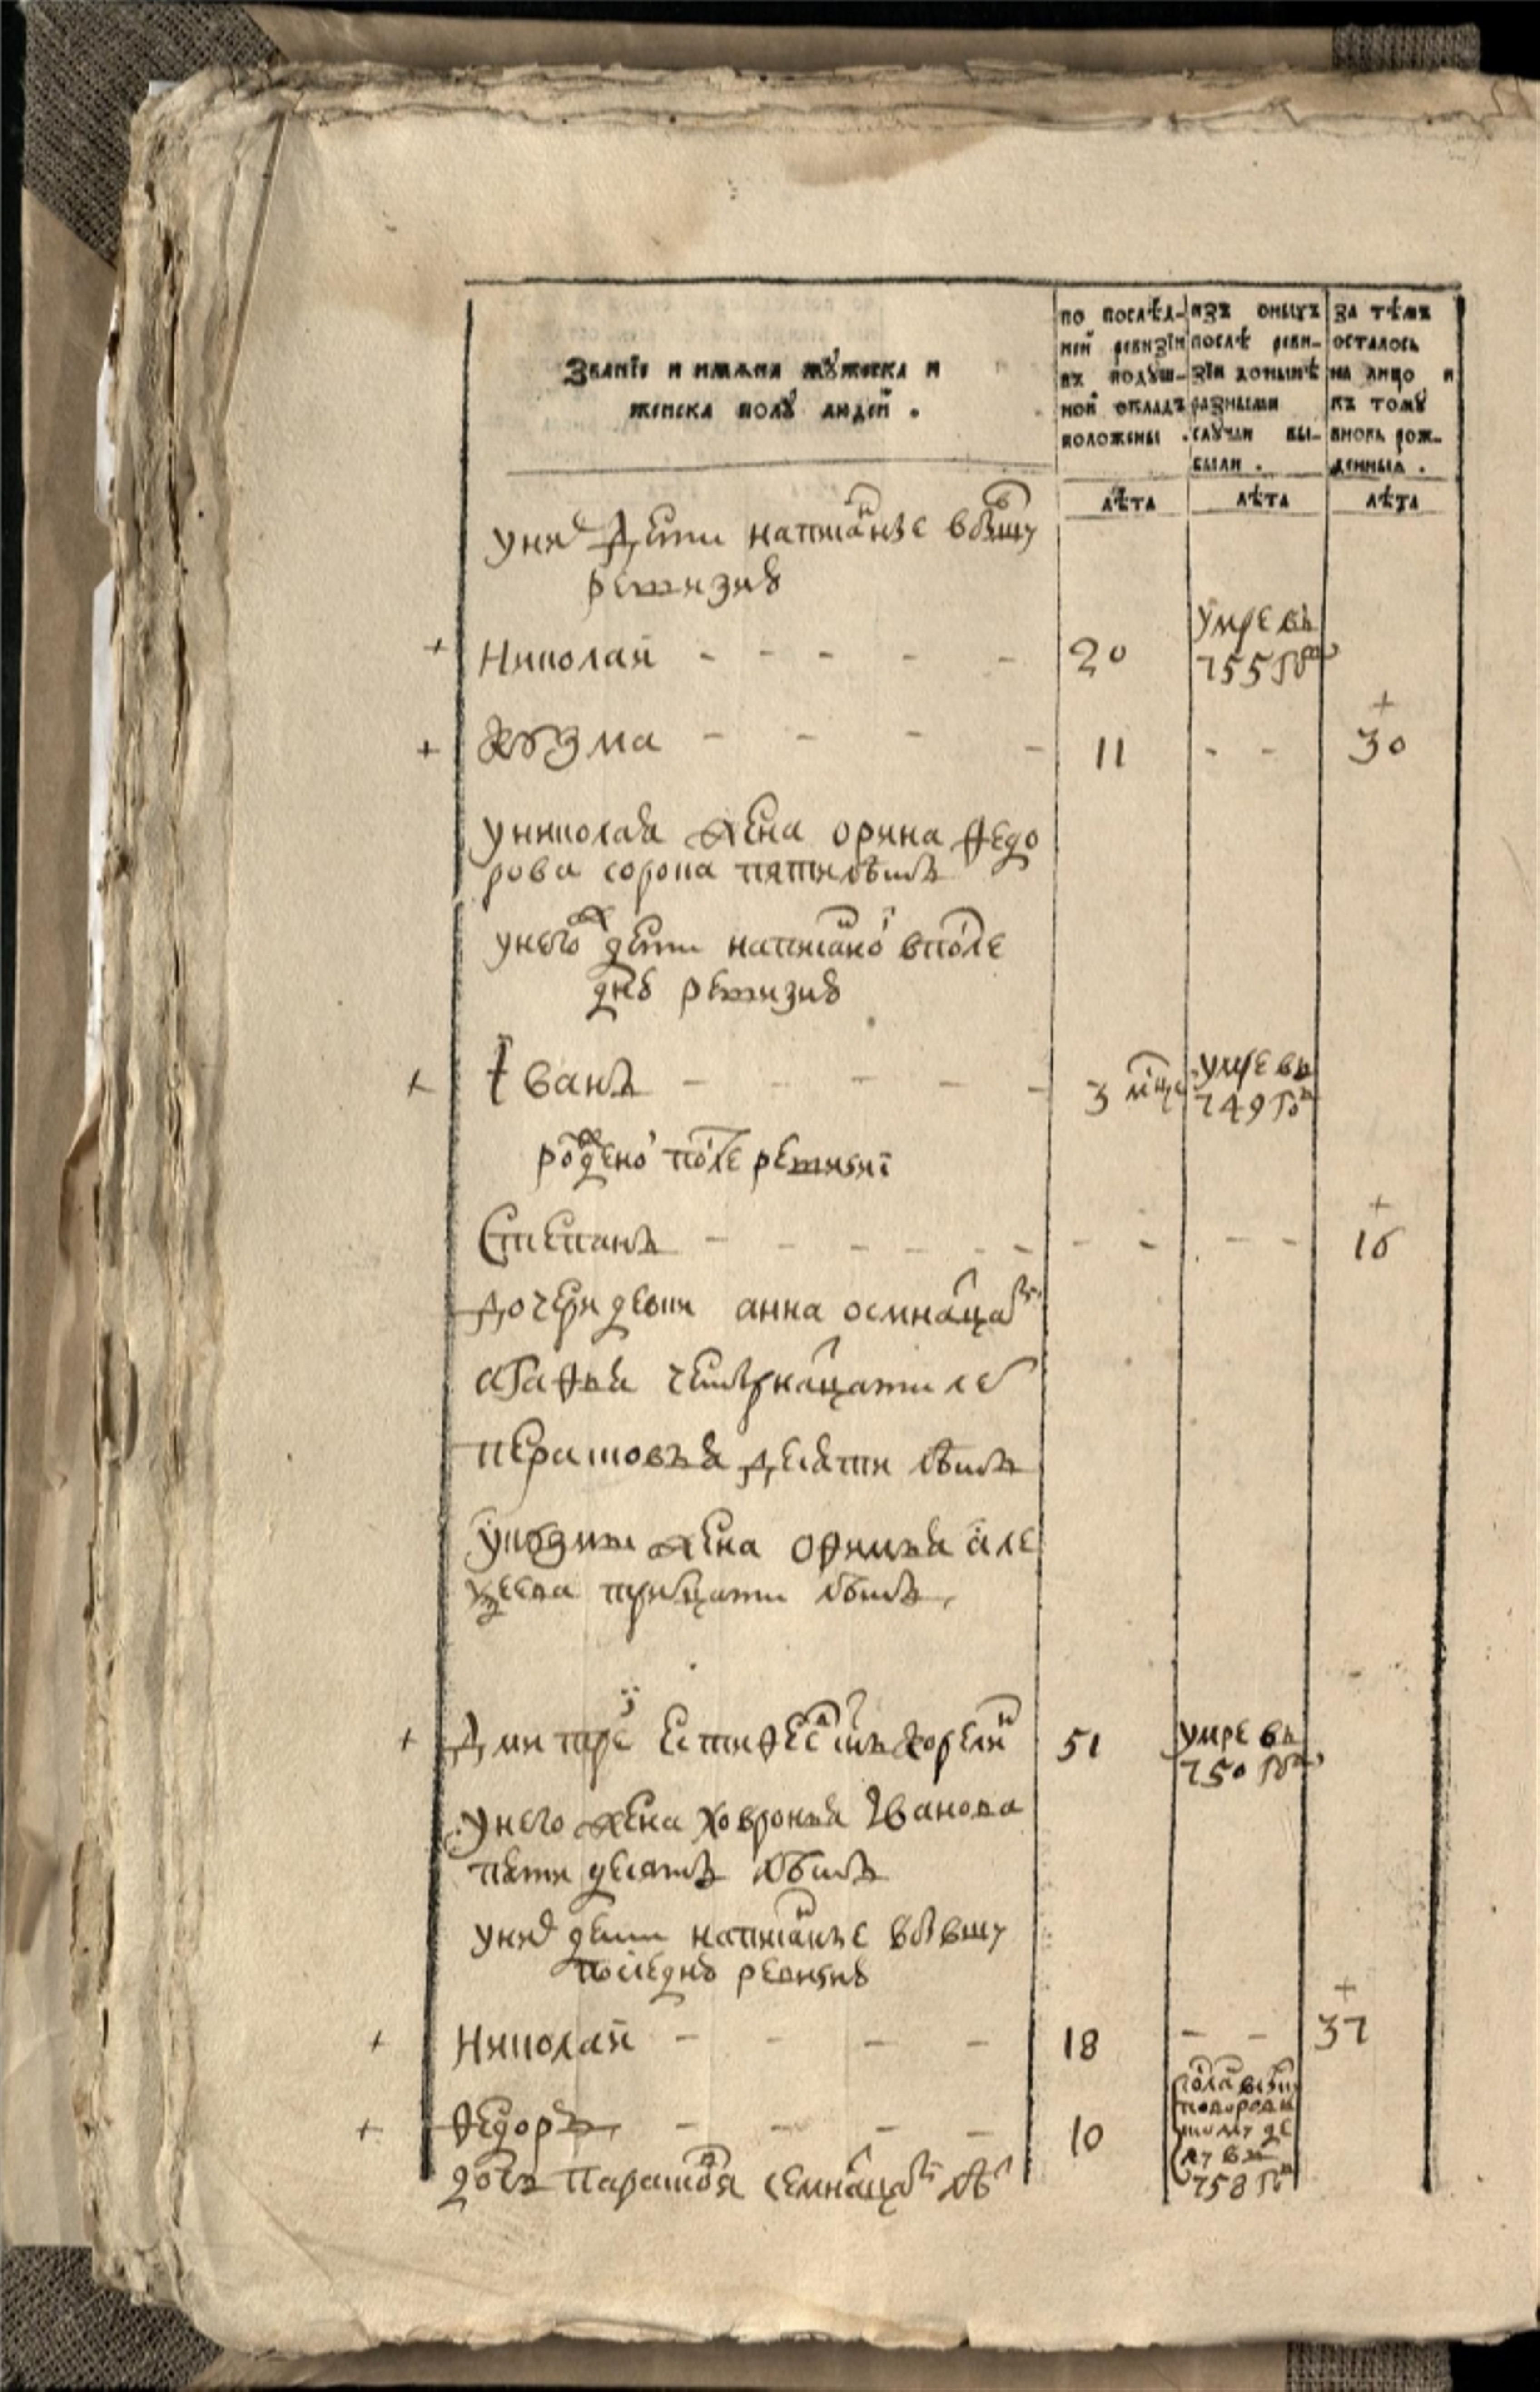 Званїе и имѧна мꙋжеска и
женска полꙋ людей .
по послѣд-
ней ревизїи
въ подꙋш-
ной окладъ
положены .
изъ оныхъ
послѣ реви-
зїи донынѣ
разными
слꙋчаи вы-
были .
за тѣмъ
осталось
на лицо и
къ томꙋ
вновь рож-
денныѧ .
лѣта лѣта лѣта
у них дети написаные в бывшу
ревизию
Николай - - - - - 20 умре въ
755 году
+
Козма - - - - 11 - - 30
у николая жена орина федо
рова сорока пяти летъ
у него ж дети написаной в после
днею ревизию
Иванъ - - - - - 3 мцы умре въ
749 году
рожденой после ревизиї
+
Степанъ - - - - - - - - - - 16
дочери девки анна осмнацати
агафья четырнацати лет
перасковья десяти летъ
у козмы жена офимья але
ѯеева трицати летъ
Дмитрей сынъ корелин 51 умре въ
750 году
у него жена ховронья Иванова
пяти десятъ летъ
у них дети написаные в бывшу
последнею ревизию
+
Николай - - - - 18 - - 37
Федоръ - - - - 10
758 году
дочь Парасковя семнацати лет